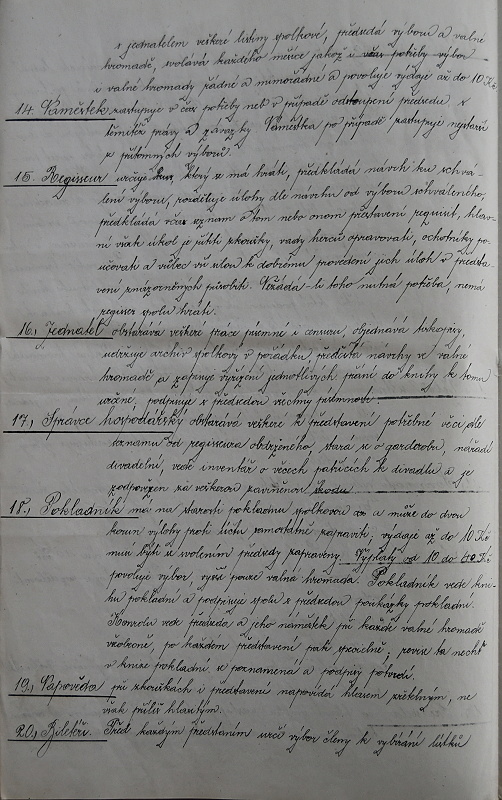 s jednatelem veškeré listiny spolkové, předsedá výboru a valné
hromadě, svolává každého měsíce jakož i včas potřeby výbor
i valné hromady řádné a mimořádné a povoluje výdaje až do 10 Kč
14. Náměstek zastupuje v čas potřeby neb v případě odstoupení předsedu s
těmitéž právy a závazky. Náměstka po případě zastupuje nejstarší
z přítomných výborů.
15. Regisseur určuje kus, který se má hráti, předkládá návrh ku schvá-
lení výboru, rozděluje úlohy dle návrhu od výboru schváleného,
předkládá včas seznam o tom nebo onom představení requisit, hlav-
ní však úkol je říditi zkoušky, vady herců opravovati, ochotníky po-
učovati a vůbec vší silou k dobrému provedení jich úloh v předsta-
vení znázorněných působiti. Nežádá-li toho nutná potřeba, nemá
regiseur spolu hráti.
16., Jednatel obstarává veškeré práce písemné i censuru, objednává
udržuje archiv spolkový v pořádku předčítá návrhy ve valné
hromadě a zapisuje vyřízení jednotlivých přání do knihy k tomu
určené, podpisuje s předsedou všechny písemnosti.
17., Správce hospodářský obstarává veškeré k představení potřebné věci dle
seznamu od regisseura obdrženého, stará se o garderobu, nářadí
divadelní, vede inventář o věcech patřících k divadlu a je
zodpovězen za veškerou zaviněnou škodu.
18., Pokladník má na starosti pokladnu spolkovou a může do dvou
korun výlohy proti účtu samostatně zapraviti; výdaje až do 10 Kč
musí býti se svolením předsedy zapraveny. Výplaty od 10 do 40 Kč
povoluje výbor, vyšší pouze valná hromada. Pokladník vede kni-
hu pokladní a podpisuje spolu s předsedou poukázky pokladní.
Kontrolu vede předseda a jeho náměstek při každé valné hromadě
výkonně, po každém představení pak zvláštně; revise ta nechť
v knize pokladní se poznamená a podpisy potvrdí.
19., Nápověda při zkouškách i představení napovídá hlasem zřetelným, ne
však příliš hlasitým.
20., Biletáři. Před každým představením určí výbor členy k vybírání lístků